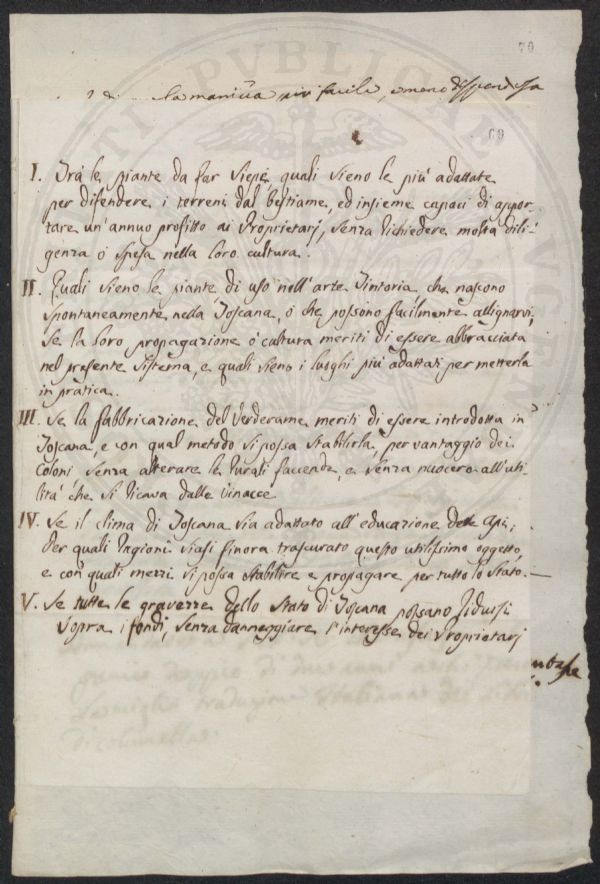 70
la maniera più facile, e meno dispendiosa
69
I. Trà le piante da far siepe quali sieno le più adattate
per difendere i terreni dal bestiame, ed insieme capaci di appor-
tare un'annuo profitto ai Proprietarj, senza richiedere molta dili-
genza ò spesa nella loro cultura.
II. Quali sieno le piante di uso nell'arte Tintoria che nascono
spontaneamente nella Toscana, ò che possono facilmente allignarvi;
se la loro propagazione ò cultura meriti di essere abbracciata
nel presente sistema, e quali sieno i luoghi più adattati per metterla
in pratica.
III. Se la fabbricazione del Verderame meriti di essere introdotta in
Toscana, e con qual metodo si possa stabilirla, per vantaggio dei
Coloni, senza alterare le rurali faccende, e senza nuocere all'uti-
lità che si ricava dalle vinacce
IV. Se il clima di Toscana sia adattato all'educazione delle Api;
Per quali ragioni siasi finora trascurato questo utilissimo oggetto,
e con quali mezzi si possa stabilire e propagare per tutto lo Stato.—
V. Se tutte le gravezze dello Stato di Toscana possano ridursi
sopra i fondi, senza danneggiare l'interesse dei Proprietarj